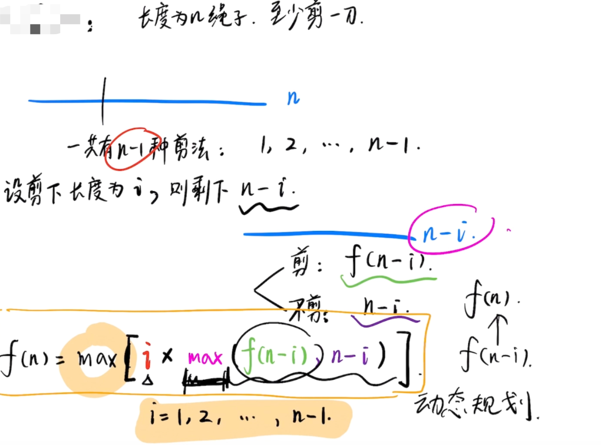 ： 长度为n绳子．至少剪一刀．
n
一共有n-1种剪法： 1, 2, …, n-1.
设剪下长度为i, 则剩下 n-i.
n-i.
剪： f(n-i).
不剪： n-i.
f(n).
↑
f(n-i).
f(n) = max[i × max(f(n-i), n-i)].
i=1, 2, …, n-1.
动态规划.